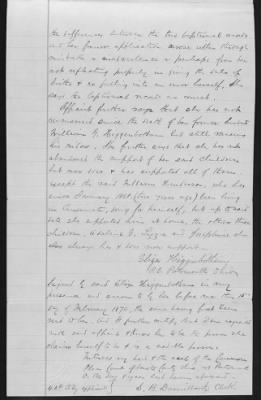 the difference between the two baptismal records
and her former application arose either through
mistake or
not explaining properly in giving the date of
births & in putting into an error herself, she
says the baptismal record is correct.
Affiant further says that she has not
remarried since the death of her former husband
William G. Higginbotham but still remains
his widow. She further says that she has not
abandoned the support of her said children,
but now does & has supported all of them
except the said William Henderson, who has
since January 1869 (one year ago) been living
in Cincinnati, doing for himself, but up to said
date she supported him at home, the other three
children, Adaline G., Lizzie and Josephine she
has always had & does now support.
Eliza Higginbotham
P.O. Portsmouth Ohio
Signed by said Eliza Higginbotham in my
presence and sworn to by her before me this 18th
day of February 1870, the same having first been
read to her. And I further certify that I am
said affiant & know her to be the person she
claims herself to be & is a credible person.
Witness my hand & the seal of the Common
Pleas Court of Scioto County Ohio, at Portsmouth
O. the day & year last above written
Clerk